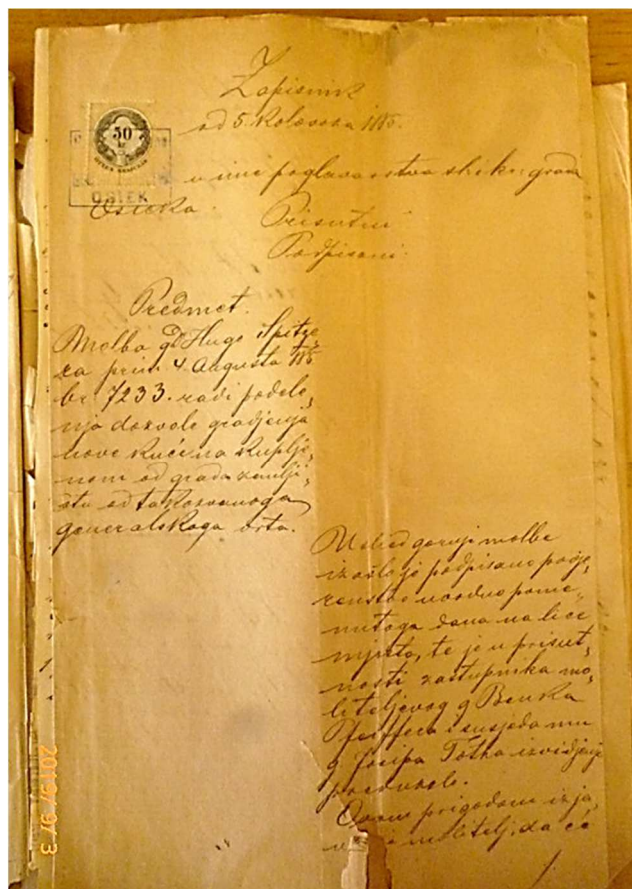 Zapisnik
od 5. Kolovoza 1885.
50
kr
OSIEK
u ime poglavarstva slob. kr. grada
Osieka.
Prisutni
Podpisani:
Predmet.
Molba gđ Hugo Spitze
ra prim 4. Augusta 885
br 7233. radi podele,
nja dozvole gradjenja
nove kuće na kuplje,
nom od grada zemlji,
štu od takozvanoga
generalskoga vrta.
Usled gornje molbe
izašlo je podpisano povje,
renstvo uvodno pome,
nutoga dana na lice
mjesta, te je u prisut,
nosti zastupnika mo,
liteljevog g Benka
Pfeiffera i susjeda mu
g Josipa Totha izvidjenje
preduzelo.
Ovom prigodom izja,
molitelj, da će
2019/9/3